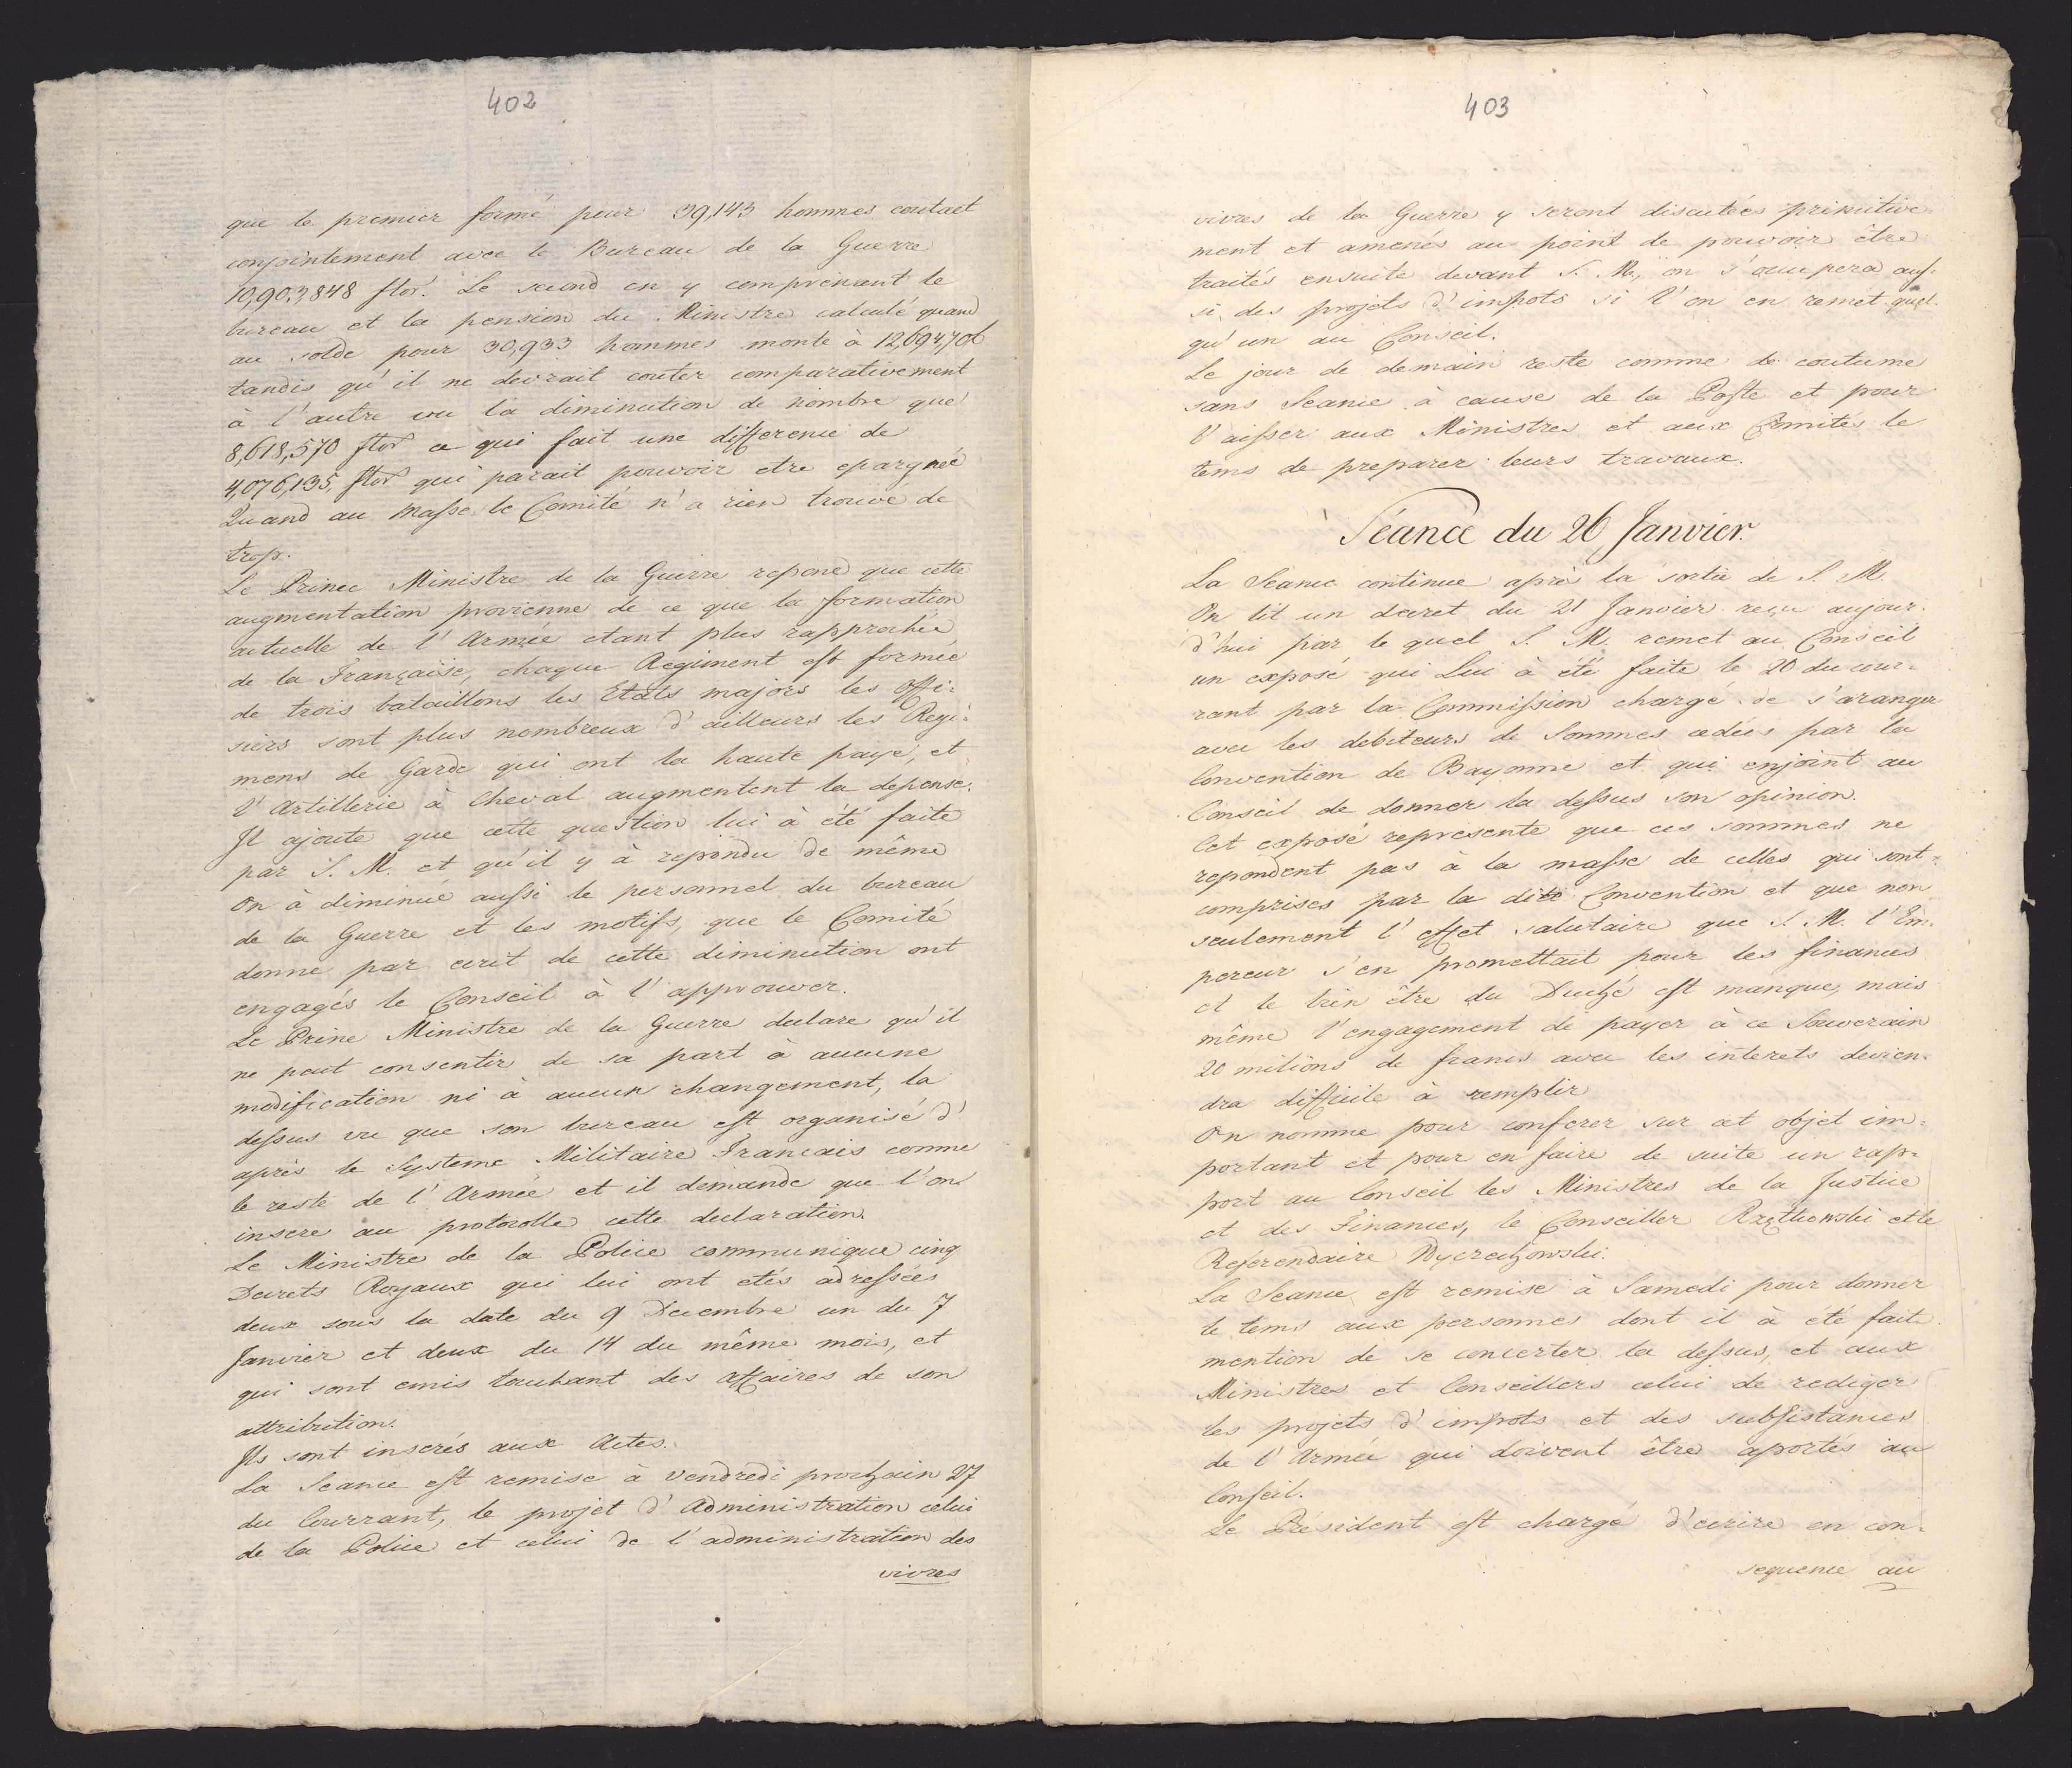 402
que le premier formé pour 39,143 hommes coutait
conjointement avec le Bureau de la Guerre
10,903,848 flor. Le second en y comprenant le
bureau et la pension du Ministre calculé quand
au solde pour 30,933 hommes monte à 12,694,706
tandis qu'il ne devrait couter comparativement
à l'autre vu la diminution de nombre que
8,618,570 flor ce qui fait une difference de
4,076,135, flor qui parait pouvoir etre epargnée
Quand au Masse le Comité n'a rien trouvé de
trop.
Le Prince Ministre de la Guerre repond que cette
augmentation provienne de ce que la formation
actuelle de l'Armée etant plus rapprochée
de la Française, chaque Regiment est formée
de trois bataillons les Etats majors les offi-
siers sont plus nombreux d'ailleurs les Regi-
mens de Garde qui ont la haute paye, et
l'Artillerie à Cheval augmentent la depense.
Il ajoute que cette question lui à été faite
par S. M. et qu'il y à repondu de même
On à diminué aussi le personnel du bureau
de la Guerre et les motifs, que le Comité
donne par ecrit de cette diminution ont
engagés le Conseil à l'approuver.
Le Prine Ministre de la Guerre declare qu'il
ne peut consentir de sa part à aucune
modification ni à aucun changement, la
dessus vu que son bureau est organisé d'
après le Systeme Militaire Francais comme
le reste de l'Armée et il demande que l'on
insere au protocolle cette declaration.
Le Ministre de la Police communique cinq
Decrets Royaux qui lui ont etés adressées
deux sous la date du 9 Decembre un du 7
Janvier et deux du 14 du même mois, et
qui sont emis touchant des affaires de son
attribution.
Ils sont inserés aux Actes.
La Seance est remise à Vendredi prochain 27
du Courrant, le projet d'Administration celui
de la Police et celui de l'administration des
vivres
403
vivres de la Guerre y seront discutées primitive-
ment et amenés au point de pouvoir être
traités ensuite devant S. M., on s'occupera aus-
si des projets d'impots si l'on en remet quel-
qu'un au Conseil.
Le jour de demain reste comme de coutume
sans Seance à cause de la Poste et pour
l'aisser aux Ministres et aux Comités le
tems de preparer leurs travaux.
Séance du 26 Janvier.
La Seance continue après la sortie de S. M.
On lit un decret du 21 Janvier reçu aujour-
d'hui par le quel S. M. remet au Conseil
un exposé qui Lui à été faite le 20 du cour-
rant par la Commission chargé de s'aranger
avec les debiteurs de Sommes cedées par la
Convention de Bayonne et qui enjoint au
Conseil de donner la dessus son opinion.
Cet exposé represente que ces sommes ne
repondent pas à la masse de celles qui sont
comprises par la dite Convention et que non
seulement l'effet salutaire que S. M. l'Em-
pereur s'en promettait pour les finances
et le bien être du Duché est manque, mais
même l'engagement de payer à ce Souverain
20 milions de francs avec les interets devien-
dra difficile à remplir
On nomme pour conferer sur cet objet im-
portant et pour en faire de suite un rap-
port au Conseil les Ministres de la Justice
et des Finances, le Conseiller et le
Referendaire
La Seance est remise à Samedi pour donner
le tems aux personnes dont il à été fait
mention de se concerter la dessus, et aux
Ministres et Conseillers celui de rediger
les projets d'impots et des subsistances
de l'Armée qui doivent être aportés au
Conseil.
Le Président est chargé d'ecrire en con-
sequence au